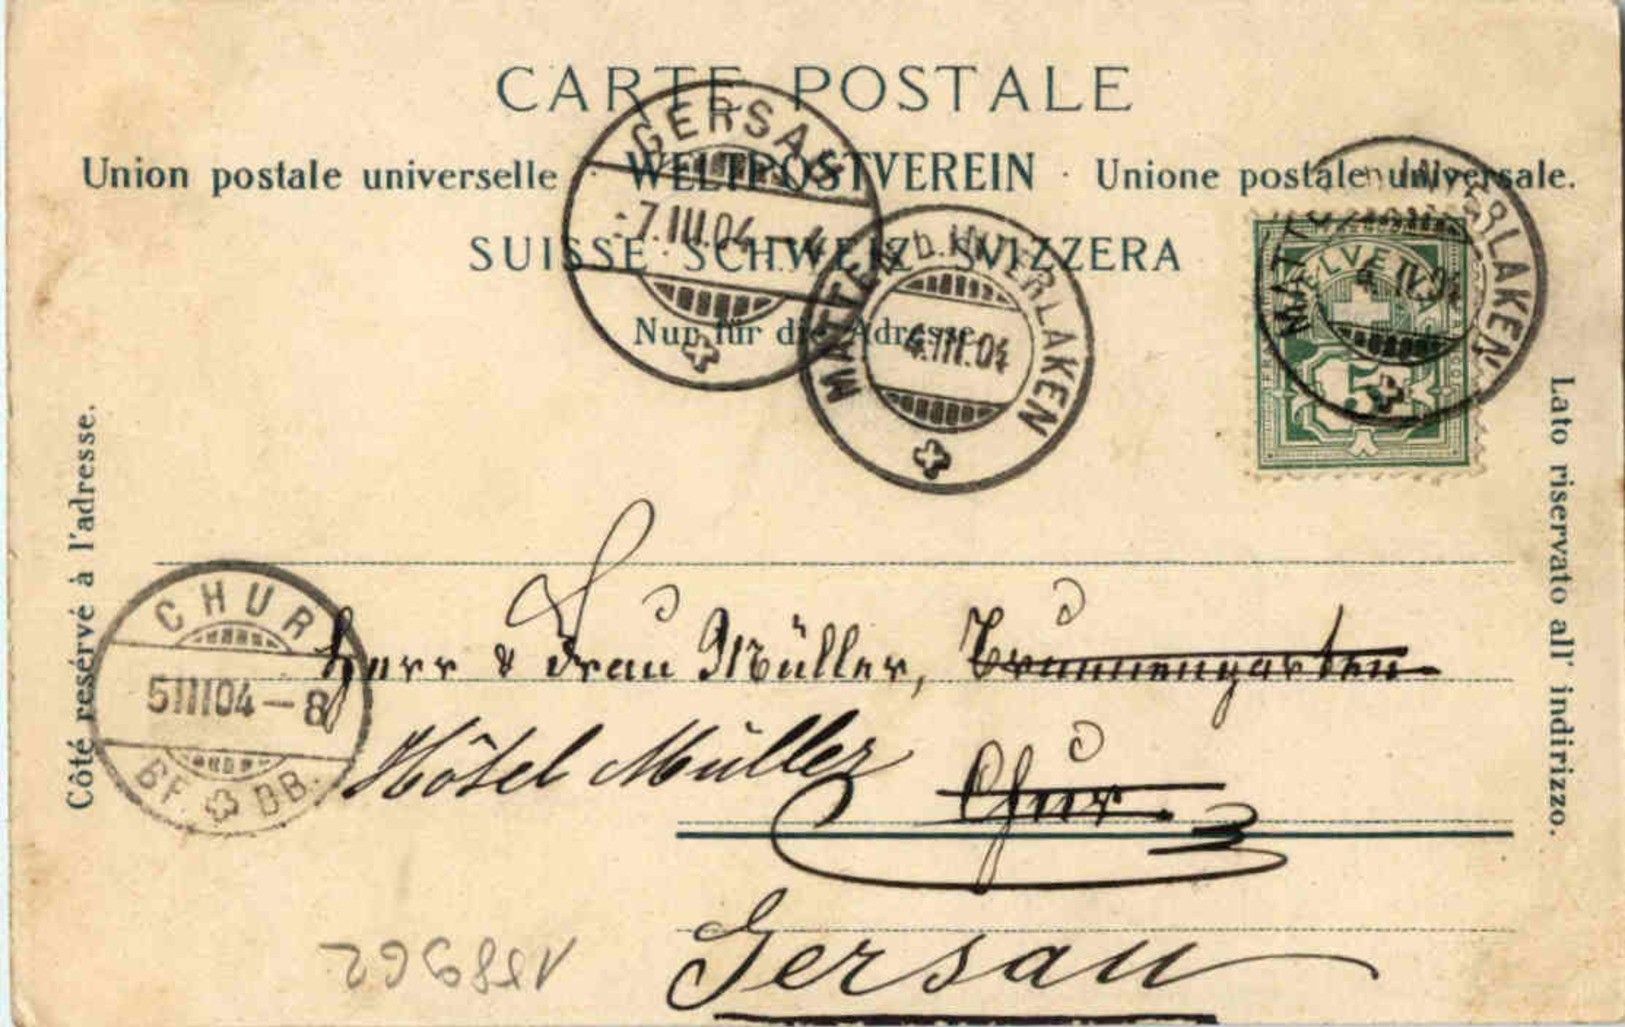 CARTE POSTALE
Union postale universelle · WELTPOSTVEREIN · Unione postale universale.
SUISSE · SCHWEIZ · SVIZZERA
Nur für die Adresse.
GERSAU
-7.III.04.-4
MATTEN b. INTERLAKEN
4.III.04
MATTEN b. INTERLAKEN
HELVETIA
5
Côté resérvé à l'adresse.
Lato riservato all' indirizzo.
CHUR
5III04-8
BF. DB.
Herr & Frau Müller, Brunnengarten
Hôtel Müller Chur.
Gersau
158962